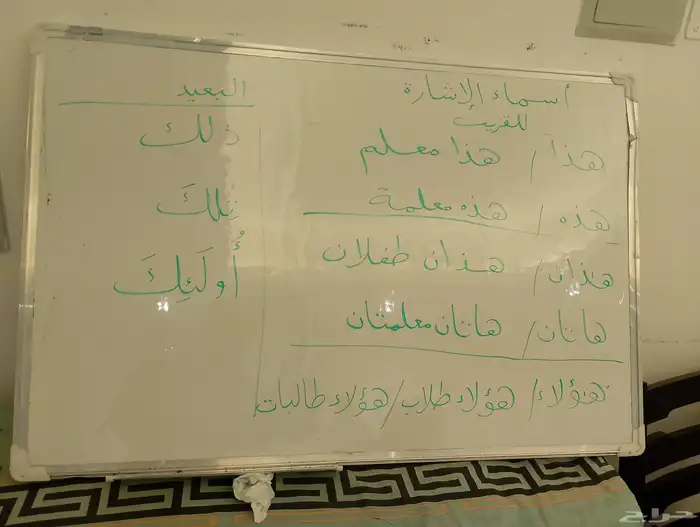 أسماء الإشارة
للقريب
هذا / هذا معلم
هذه / هذه معلمة
هذان / هذان طفلان
هاتان / هاتان معلمتان
هؤلاء / هؤلاء طلاب / هؤلاء طالبات
البعيد
ذلك
تِلكَ
أُولَئِكَ
حراج